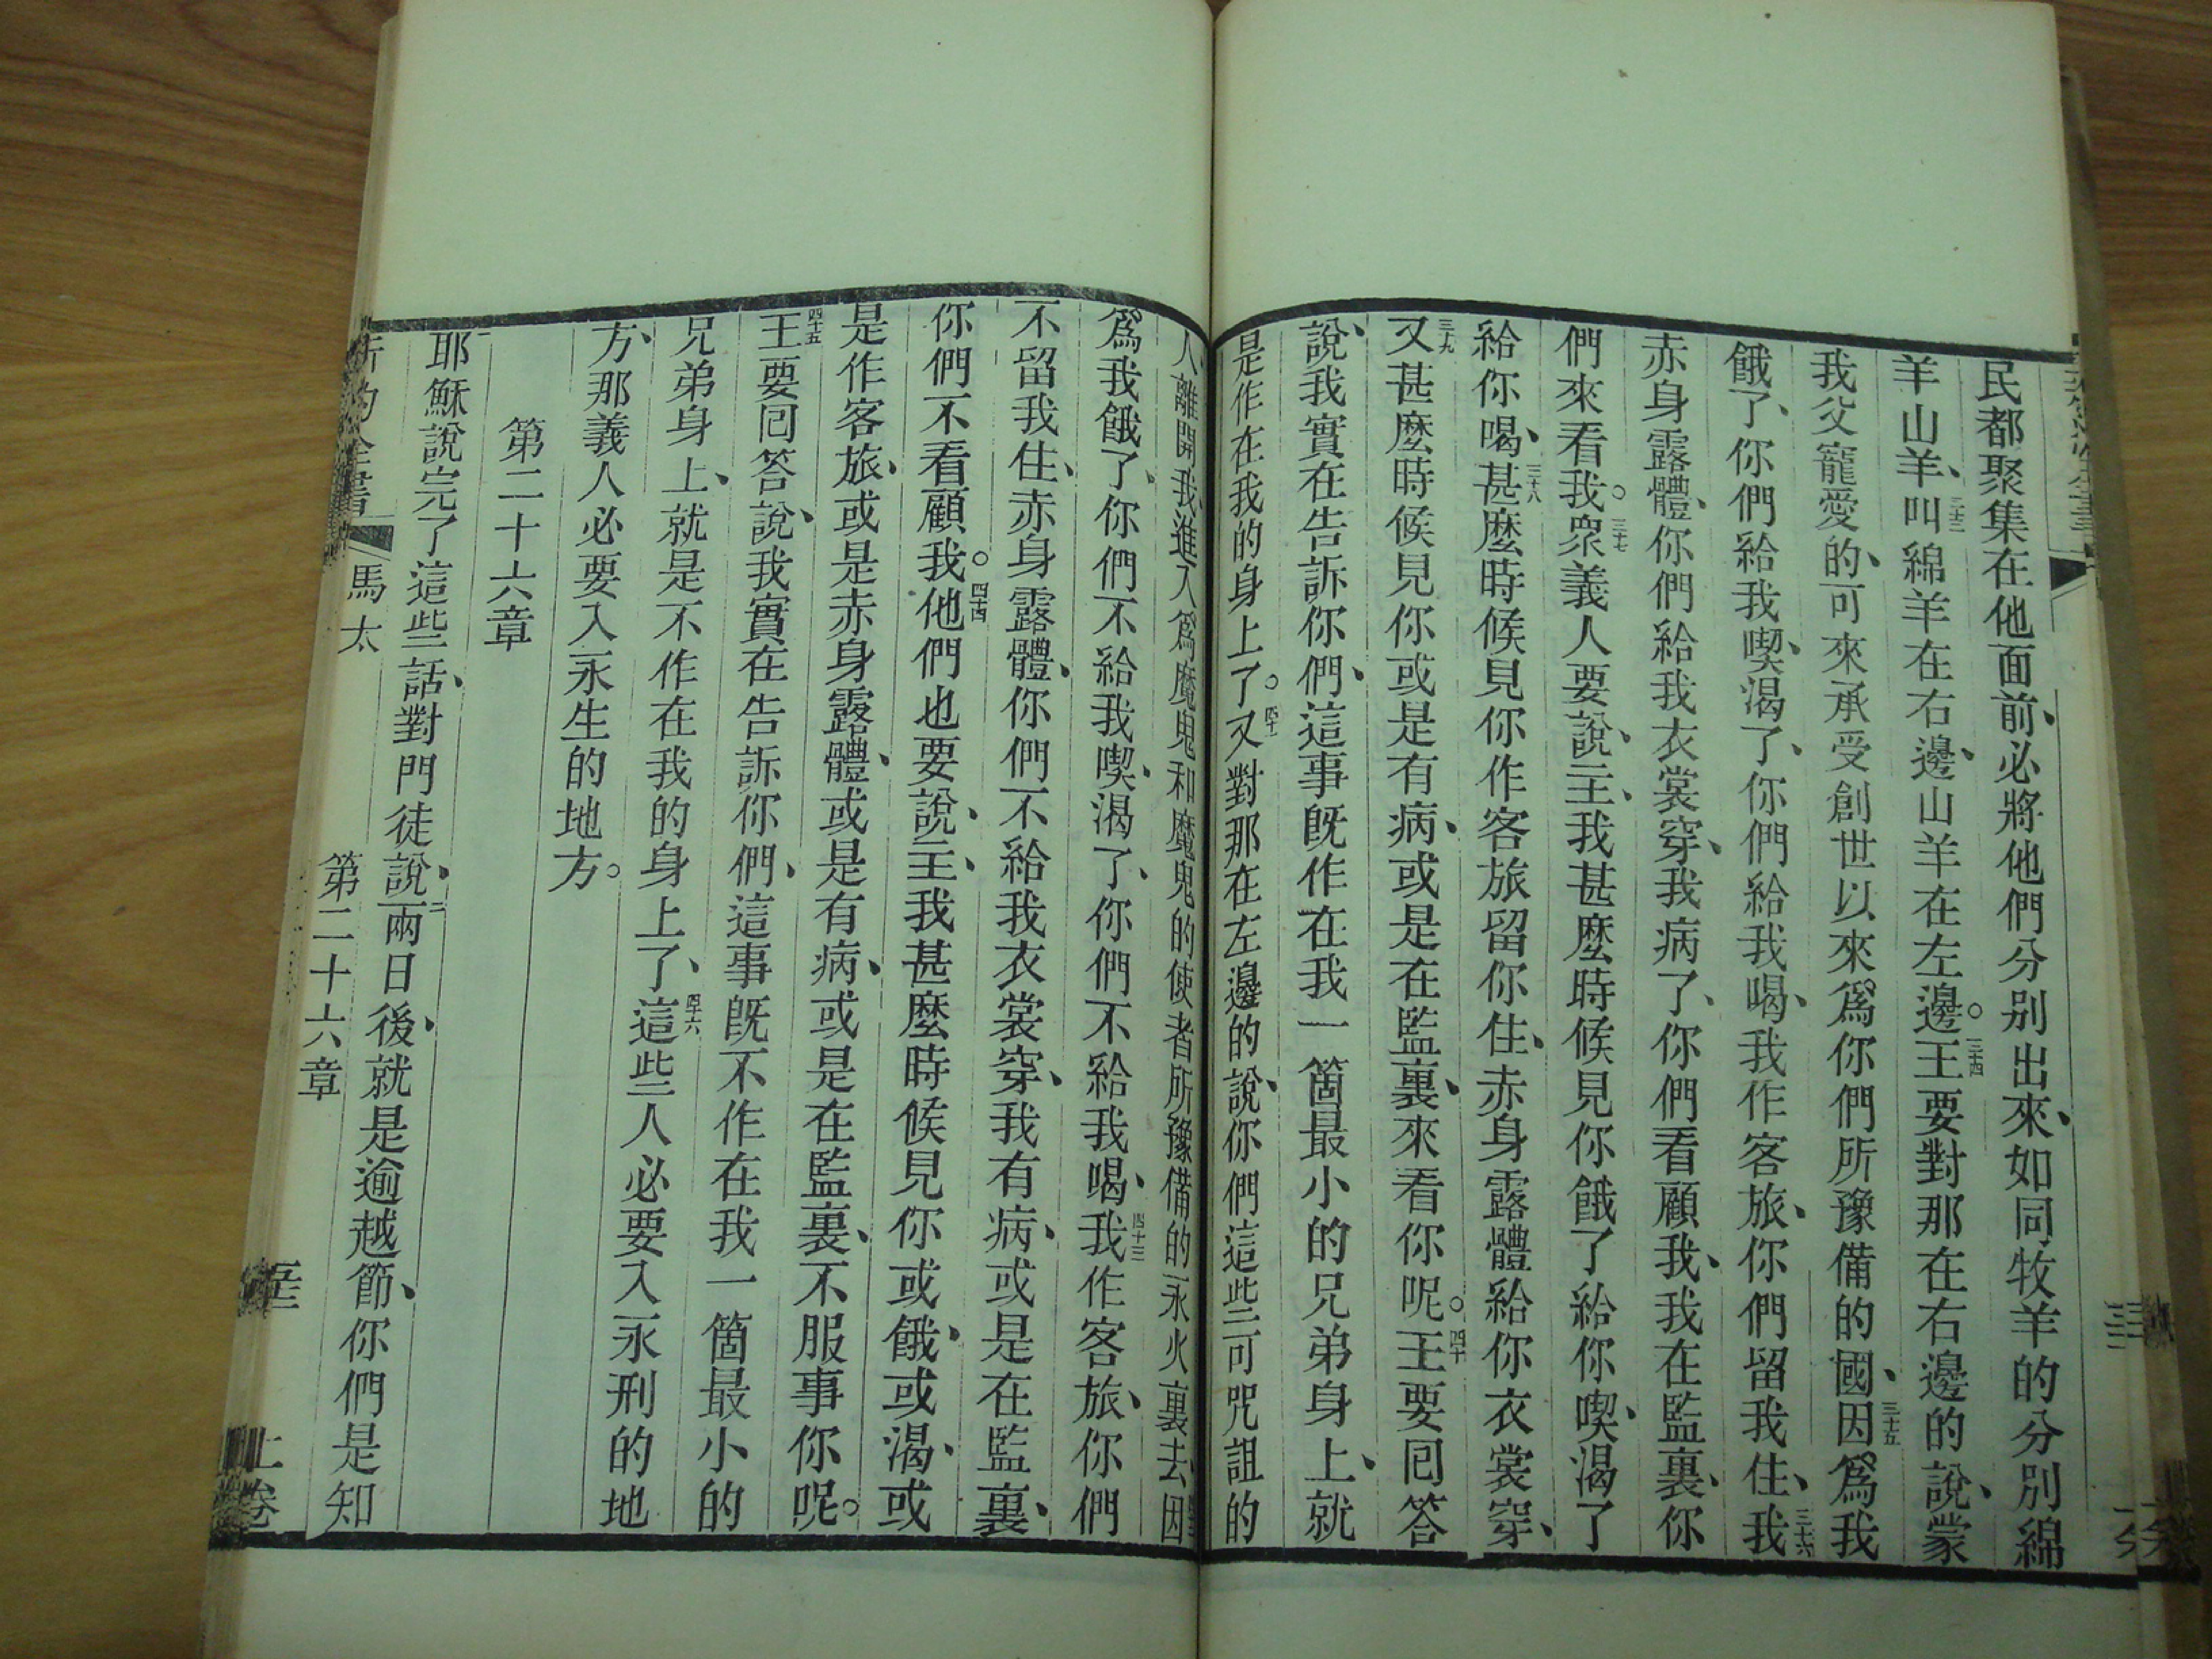 民都聚集在他面前、必將他們分別出來、如同牧羊的分別綿
羊山羊、三十三叫綿羊在右邊、山羊在左邊。三十四王要對那在右邊的說、蒙
我父寵愛的、可來承受創世以來爲你們所豫備的國、三十五因爲我
餓了、你們給我喫、渴了、你們給我喝、我作客旅、你們留我住、三十六我
赤身露體、你們給我衣裳穿、我病了、你們看顧我、我在監裏、你
們來看我。三十七衆義人要說、主、我甚麼時候見你餓了給你喫、渴了
給你喝、三十八甚麼時候見你作客旅留你住、赤身露體給你衣裳穿、
三十九又甚麼時候見你或是有病、或是在監裏、來看你呢。四十王要囘答
說、我實在告訴你們、這事旣作在我一箇最小的兄弟身上、就
是作在我的身上了。四十一又對那在左邊的說、你們這些可咒詛的
人、離開我、進入爲魔鬼和魔鬼的使者所豫備的永火裏去、因
爲我餓了、你們不給我喫、渴了、你們不給我喝、四十三我作客旅、你們
不留我住、赤身露體、你們不給我衣裳穿、我有病、或是在監裏、
你們不看顧我。四十四他們也要說、主、我甚麼時候見你或餓、或渴、或
是作客旅、或是赤身露體、或是有病、或是在監裏、不服事你呢。
四十五王要囘答說、我實在告訴你們、這事旣不作在我一箇最小的
兄弟身上、就是不作在我的身上了、四十六這些人必要入永刑的地
方、那義人必要入永生的地方。
第二十六章
一耶穌說完了這些話、對門徒說、二兩日後、就是逾越節、你們是知
新約全書 馬太 第二十六章 上卷